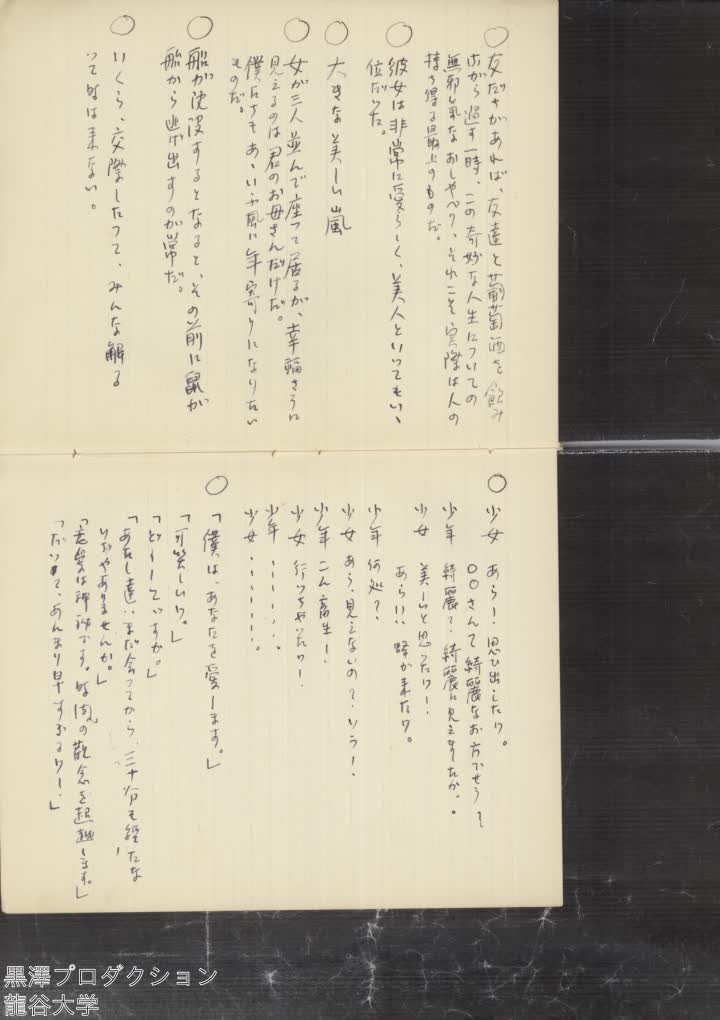 ○ 友だちがあれば、友達と葡萄酒を飲み
ながら過す一時、この奇妙な人生についての
無邪気なおしやべり、それこそ実際は人の
持ち得る最上のものだ。
○ 彼女は非常に愛らしく、美人といつてもいゝ
位だつた。
○ 大きな美しい嵐
○ 女が三人並んで座つて居るが、幸福さうに
見えるのは君のお母さんだけだ。
僕たちもあゝいふ風に年寄りになりたい
ものだ。
船が沈没するとなると、その前に鼠が
船から逃げ出すのが常だ。
○ いくら、交際したつて、みんな解る
つて時は来ない。
○ 少女 あら!思ひ出したわ。
○○さんて綺麗なお方でせうて
少年 綺麗?綺麗に見えましたか。
少女 美しいと思つたわ!
あら!! 蜂が来たわ。
少年 何処?
少女 あら、見えないの?
少年 こん畜生!
少女 行つちやつたわ!
少年 ・・・・・・・。
少女 ・・・・・・・。
○ 「僕は、あなたを愛します。」
「可笑しいわ。」
「どうしてですか。」
「あたし達、まだ会つてから、三十分も経たな
いぢやありませんか。」
「恋愛は神秘です。時間の観念を超越します。」
「だつて、あんまり早すぎるわ!」
黒澤プロダクション
龍谷大学